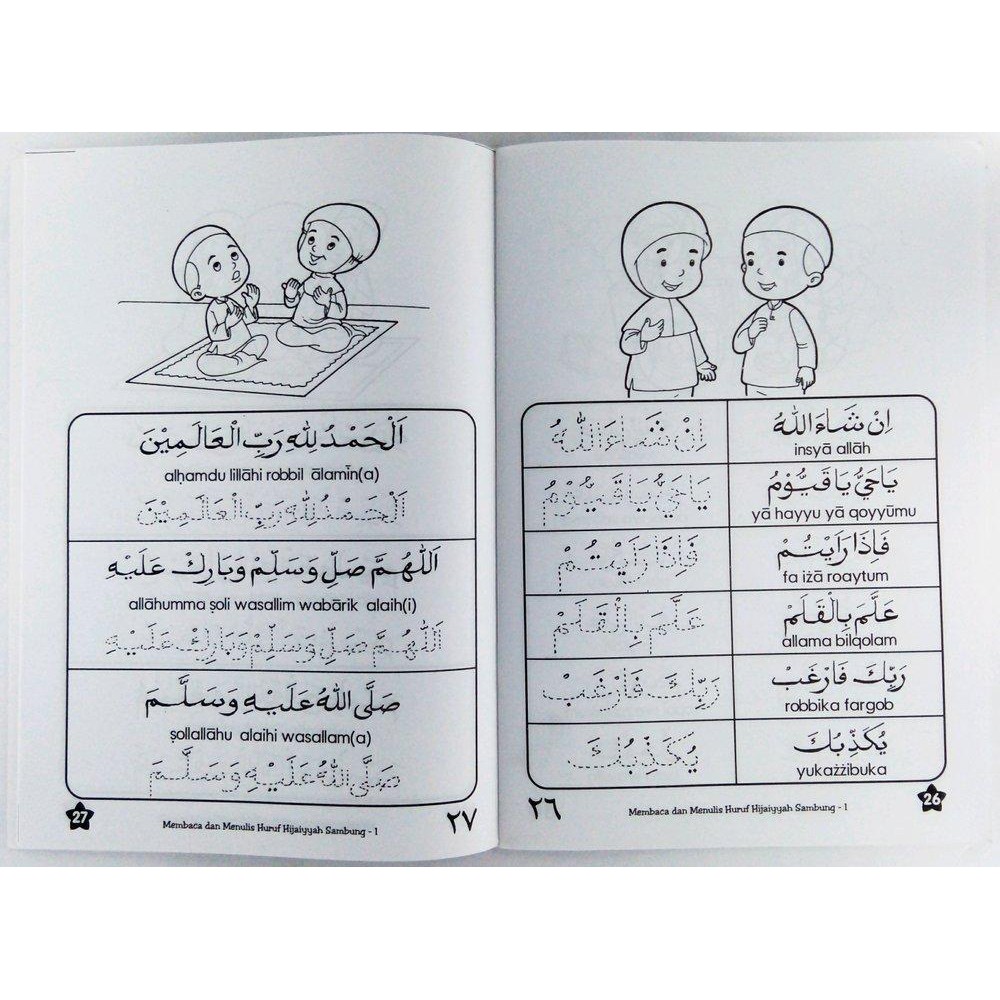 اِنْ شَاءَ اللّٰهُ
insyā allāh
اِنْ شَاءَ اللّٰهُ
يَاحَيُّ يَا قَيُّوْمُ
yā hayyu yā qoyyūmu
يَاحَيُّ يَا قَيُّوْمُ
فَاِذَا رَاَيْتُمْ
fa iżā roaytum
فَاِذَا رَاَيْتُمْ
عَلَّمَ بِالْقَلَمْ
allama bilqolam
عَلَّمَ بِالْقَلَمْ
رَبِّكَ فَارْغَبْ
robbika fargob
رَبِّكَ فَارْغَبْ
يُكَذِّبُكَ
yukażżibuka
يُكَذِّبُكَ
٢٦ Membaca dan Menulis Huruf Hijaiyyah Sambung - 1 26
اَلْحَمْدُ لِلّٰهِ رَبِّ الْعَالَمِيْنَ
alḥamdu lillāhi robbil ālamīn(a)
اَلْحَمْدُ لِلّٰهِ رَبِّ الْعَالَمِيْنَ
اَللّٰهُمَّ صَلِّ وَسَلِّمْ وَبَارِكْ عَلَيْهِ
allāhumma ṣoli wasallim wabārik alaih(i)
اَللّٰهُمَّ صَلِّ وَسَلِّمْ وَبَارِكْ عَلَيْهِ
صَلَّى اللّٰهُ عَلَيْهِ وَسَلَّمَ
ṣollallāhu alaihi wasallam(a)
صَلَّى اللّٰهُ عَلَيْهِ وَسَلَّمَ
27 Membaca dan Menulis Huruf Hijaiyyah Sambung - 1 ٢٧